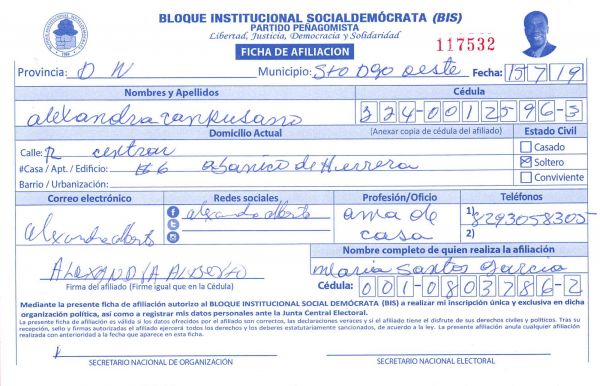 BLOQUE INSTITUCIONAL SOCIALDEMÓCRATA (BIS)
PARTIDO PEÑAGOMISTA
Libertad, Justicia, Democracia y Solidaridad
FICHA DE AFILIACION
117532
Provincia: D N Municipio: Sto Dgo oeste Fecha: 15 7 19
Nombres y Apellidos Cédula
alexandra 224-0012596-3
Domicilio Actual (Anexar copia de cédula del afiliado) Estado Civil
Calle: central Casado
#Casa / Apt. / Edificio: #6 abanico de Herrera Soltero
Barrio / Urbanización: Conviviente
Correo electrónico Redes sociales Profesión/Oficio Teléfonos
alexandra alberto alexandra alberto ama de casa 1) 8293058305
2)
Nombre completo de quien realiza la afiliación
maria Santos Garcia
ALEXANDRA ALBERTO
Firma del afiliado (Firme igual que en la Cédula) Cédula: 001-0803286-2
Mediante la presente ficha de afiliación autorizo al BLOQUE INSTITUCIONAL SOCIAL DEMÓCRATA (BIS) a realizar mi inscripción única y exclusiva en dicha
organización política, así como a registrar mis datos personales ante la Junta Central Electoral.
La presente ficha de afiliación es válida si los datos ofrecidos por el afiliado son correctos, las declaraciones veraces y si el afiliado tiene el disfrute de sus derechos civiles y políticos. Tras su
recepción, sello y firmas autorizadas el afiliado ejercerá todos los derechos y los deberes estatutariamente sancionados, de acuerdo a la ley. La presente afiliación anula cualquier afiliación
realizada con anterioridad a la fecha que aparece en esta ficha.
SECRETARIO NACIONAL DE ORGANIZACIÓN SECRETARIO NACIONAL ELECTORAL